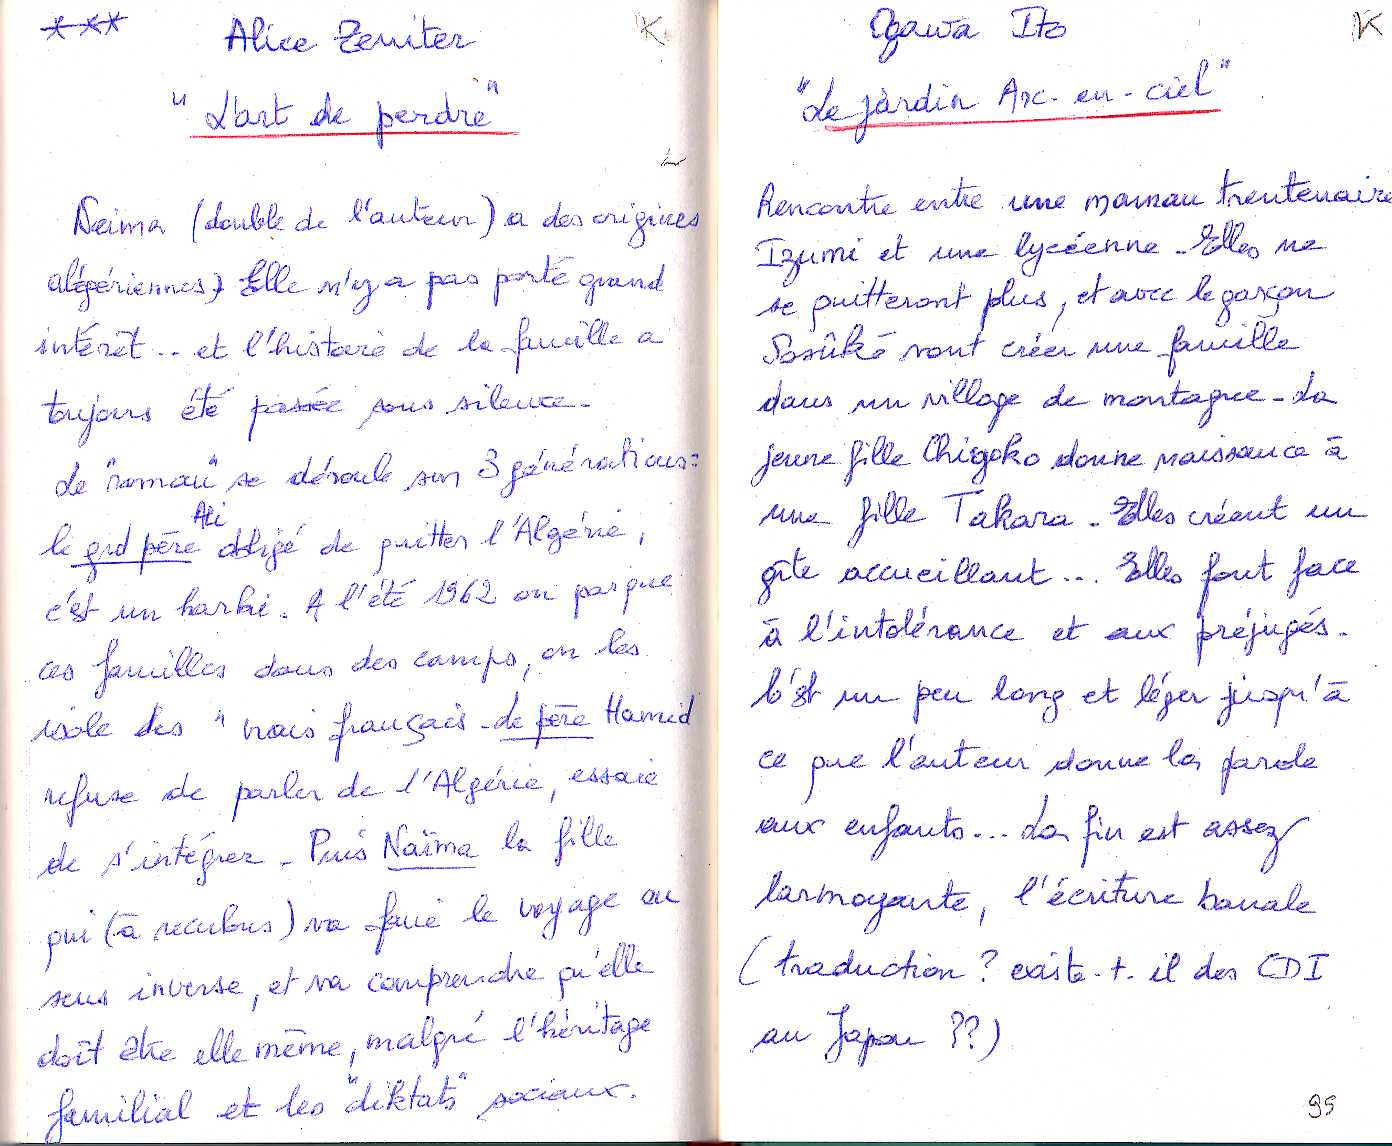 ***
Alice Zeniter
K
"L'art de perdre"
Neima (double de l'auteur) a des origines
algériennes) Elle n'y a pas porté grand
intérêt .. et l'histoire de la famille a
toujours été passée sous silence.
Le "roman" se déroule sur 3 générations :
Ali
le grd père obligé de quitter l'Algérie,
c'est un harki. A l'été 1962 on parque
ces familles dans des camps, on les
isole des "vrais français. Le père Hamid
refuse de parler de l'Algérie, essaie
de s'intégrer. Puis Naïma la fille
qui (à reculons) va faire le voyage en
sens inverse, et va comprendre qu'elle
doit être elle même, malgré l'héritage
familial et les "diktats" sociaux.
Ogawa Ito
K
"Le jardin Arc-en-ciel"
Rencontre entre une maman trentenaire
Izumi et une lycéenne. Elles ne
se quitteront plus, et avec le garçon
Sosûké vont créer une famille
dans un village de montagne. La
jeune fille Chigoko donne naissance à
une fille Takara. Elles créent un
gîte accueillant ... Elles font face
à l'intolérance et aux préjugés.
C'est un peu long et léger jusqu'à
ce que l'auteur donne la parole
aux enfants... La fin est assez
larmoyante, l'écriture banale
(traduction ? existe-t-il des CDI
au Japon ??)
95